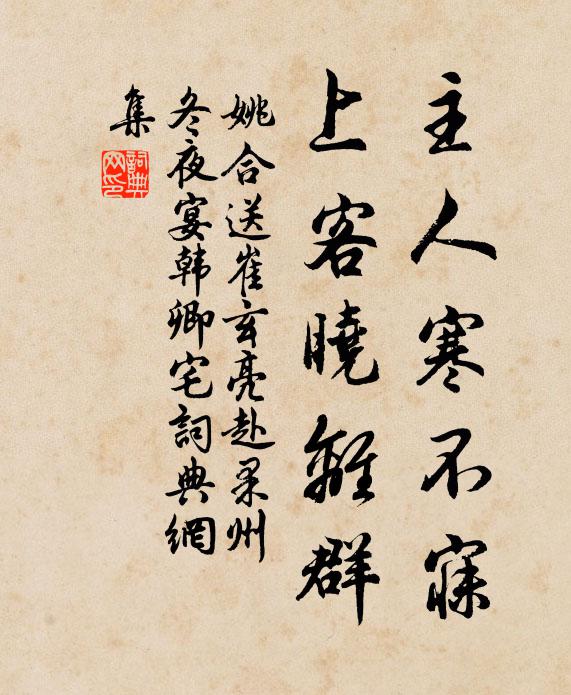 主人寒不寐
上客曉離群
姚合送崔玄亮赴果州
冬夜宴韩卿宅詞典網
集
詞典網印